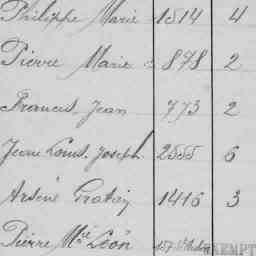 Philippe Marie 1514 4
Pierre Marie 878 2
Francis Jean 773 2
Jean Louis Joseph 2555 6
Arsène 1416 3
Pierre Mie Léon 157
EXEMPT